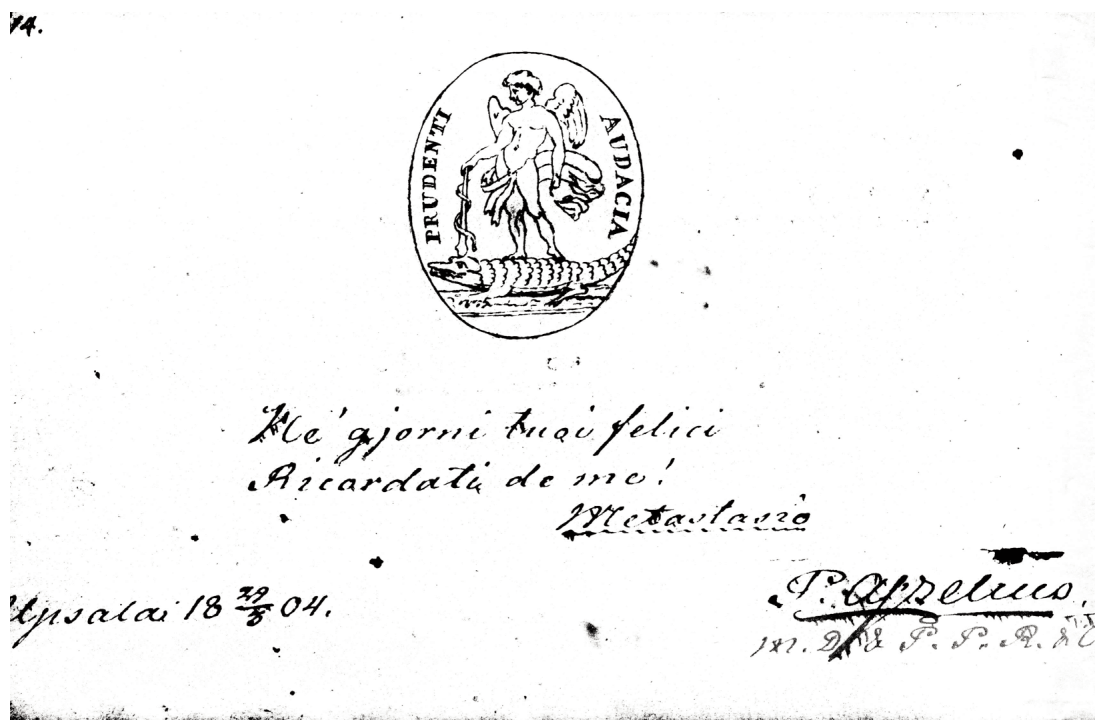 14.
PRUDENTI AUDACIA
Ne' gjorni tuoi felici
Ricordati de me!
Metastasio
Upsala 18 29/5 04.
P. Afzelius.
M. D. & P. P. R. & O